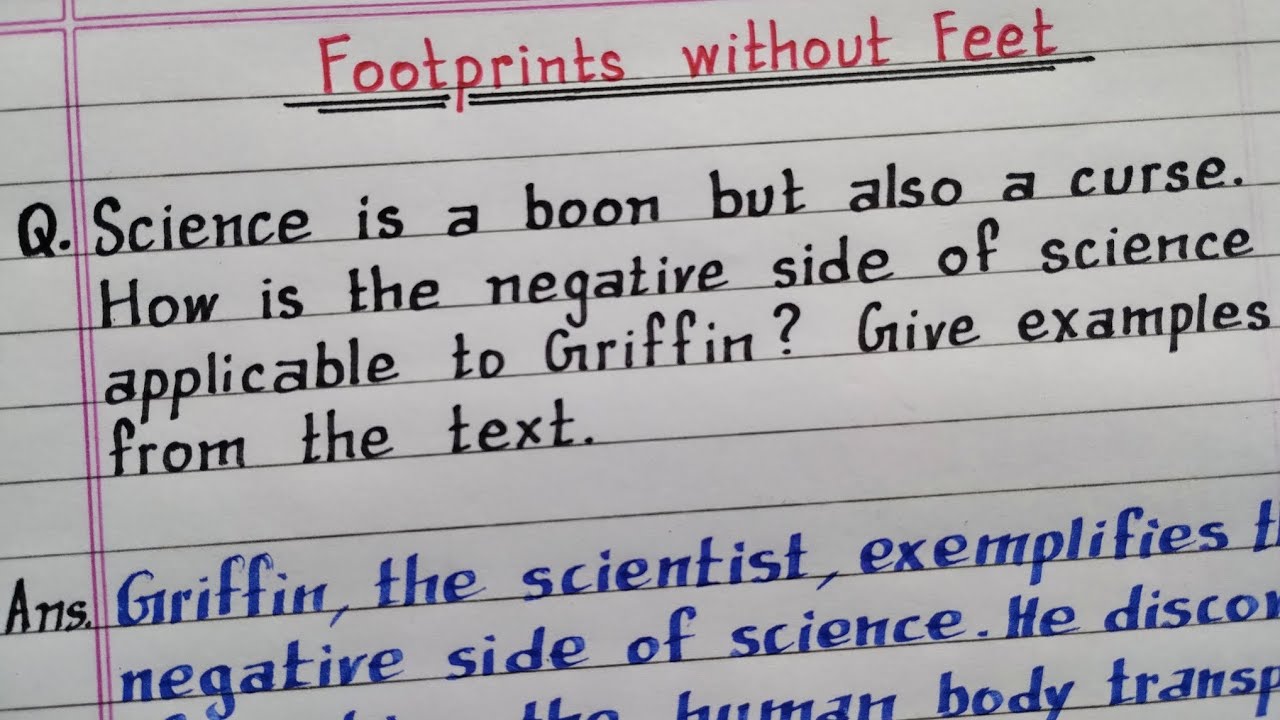 Footprints without Feet
Q. Science is a boon but also a curse.
How is the negative side of science
applicable to Griffin? Give examples
from the text.
Ans. Griffin, the scientist, exemplifies
negative side of science. He
the human body